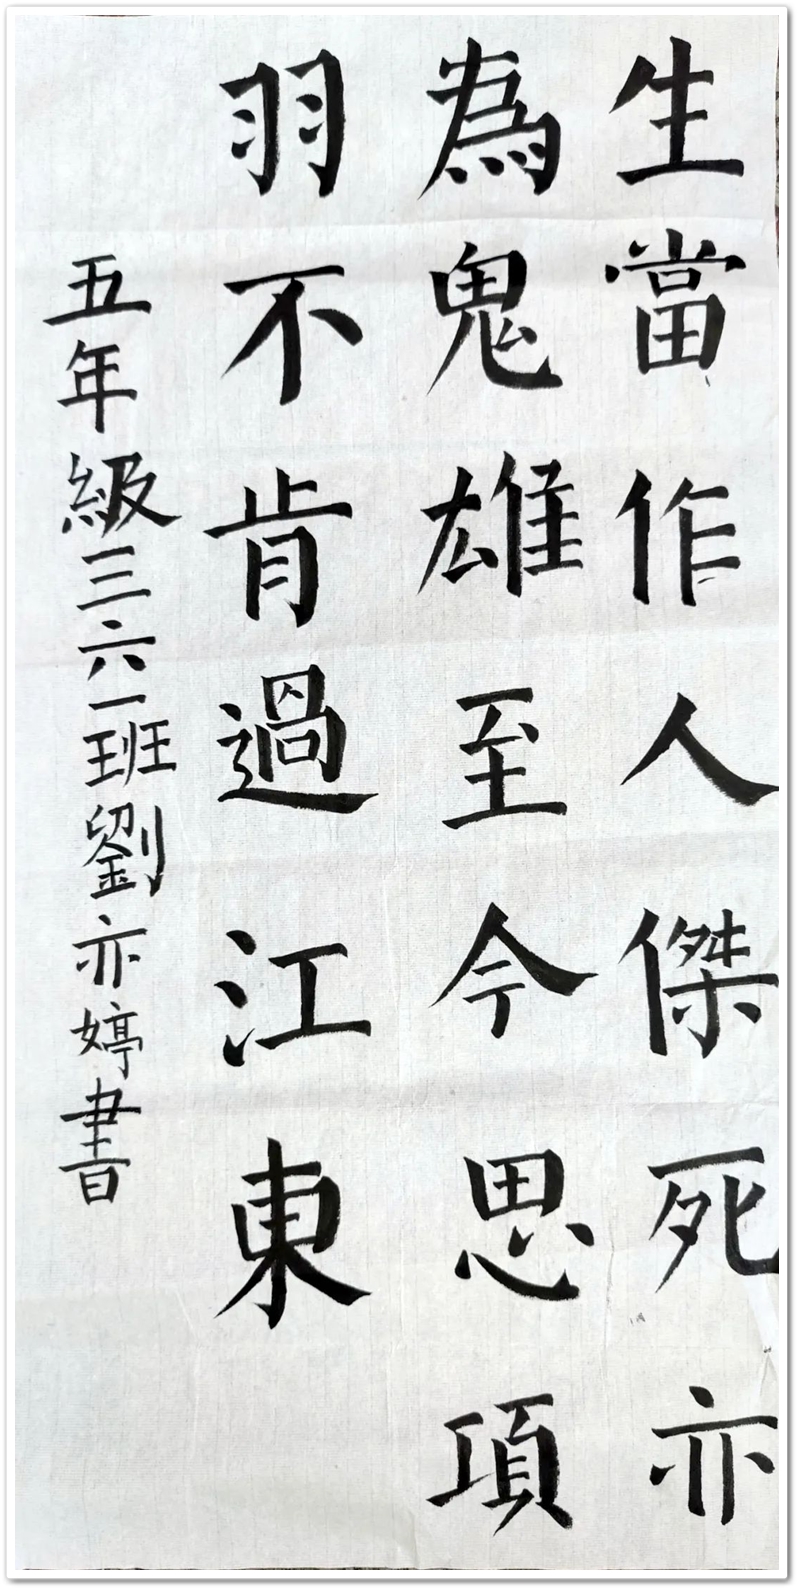 生當作人傑死亦
為鬼雄至今思項
羽不肯過江東
五年級三六一班劉亦婷書